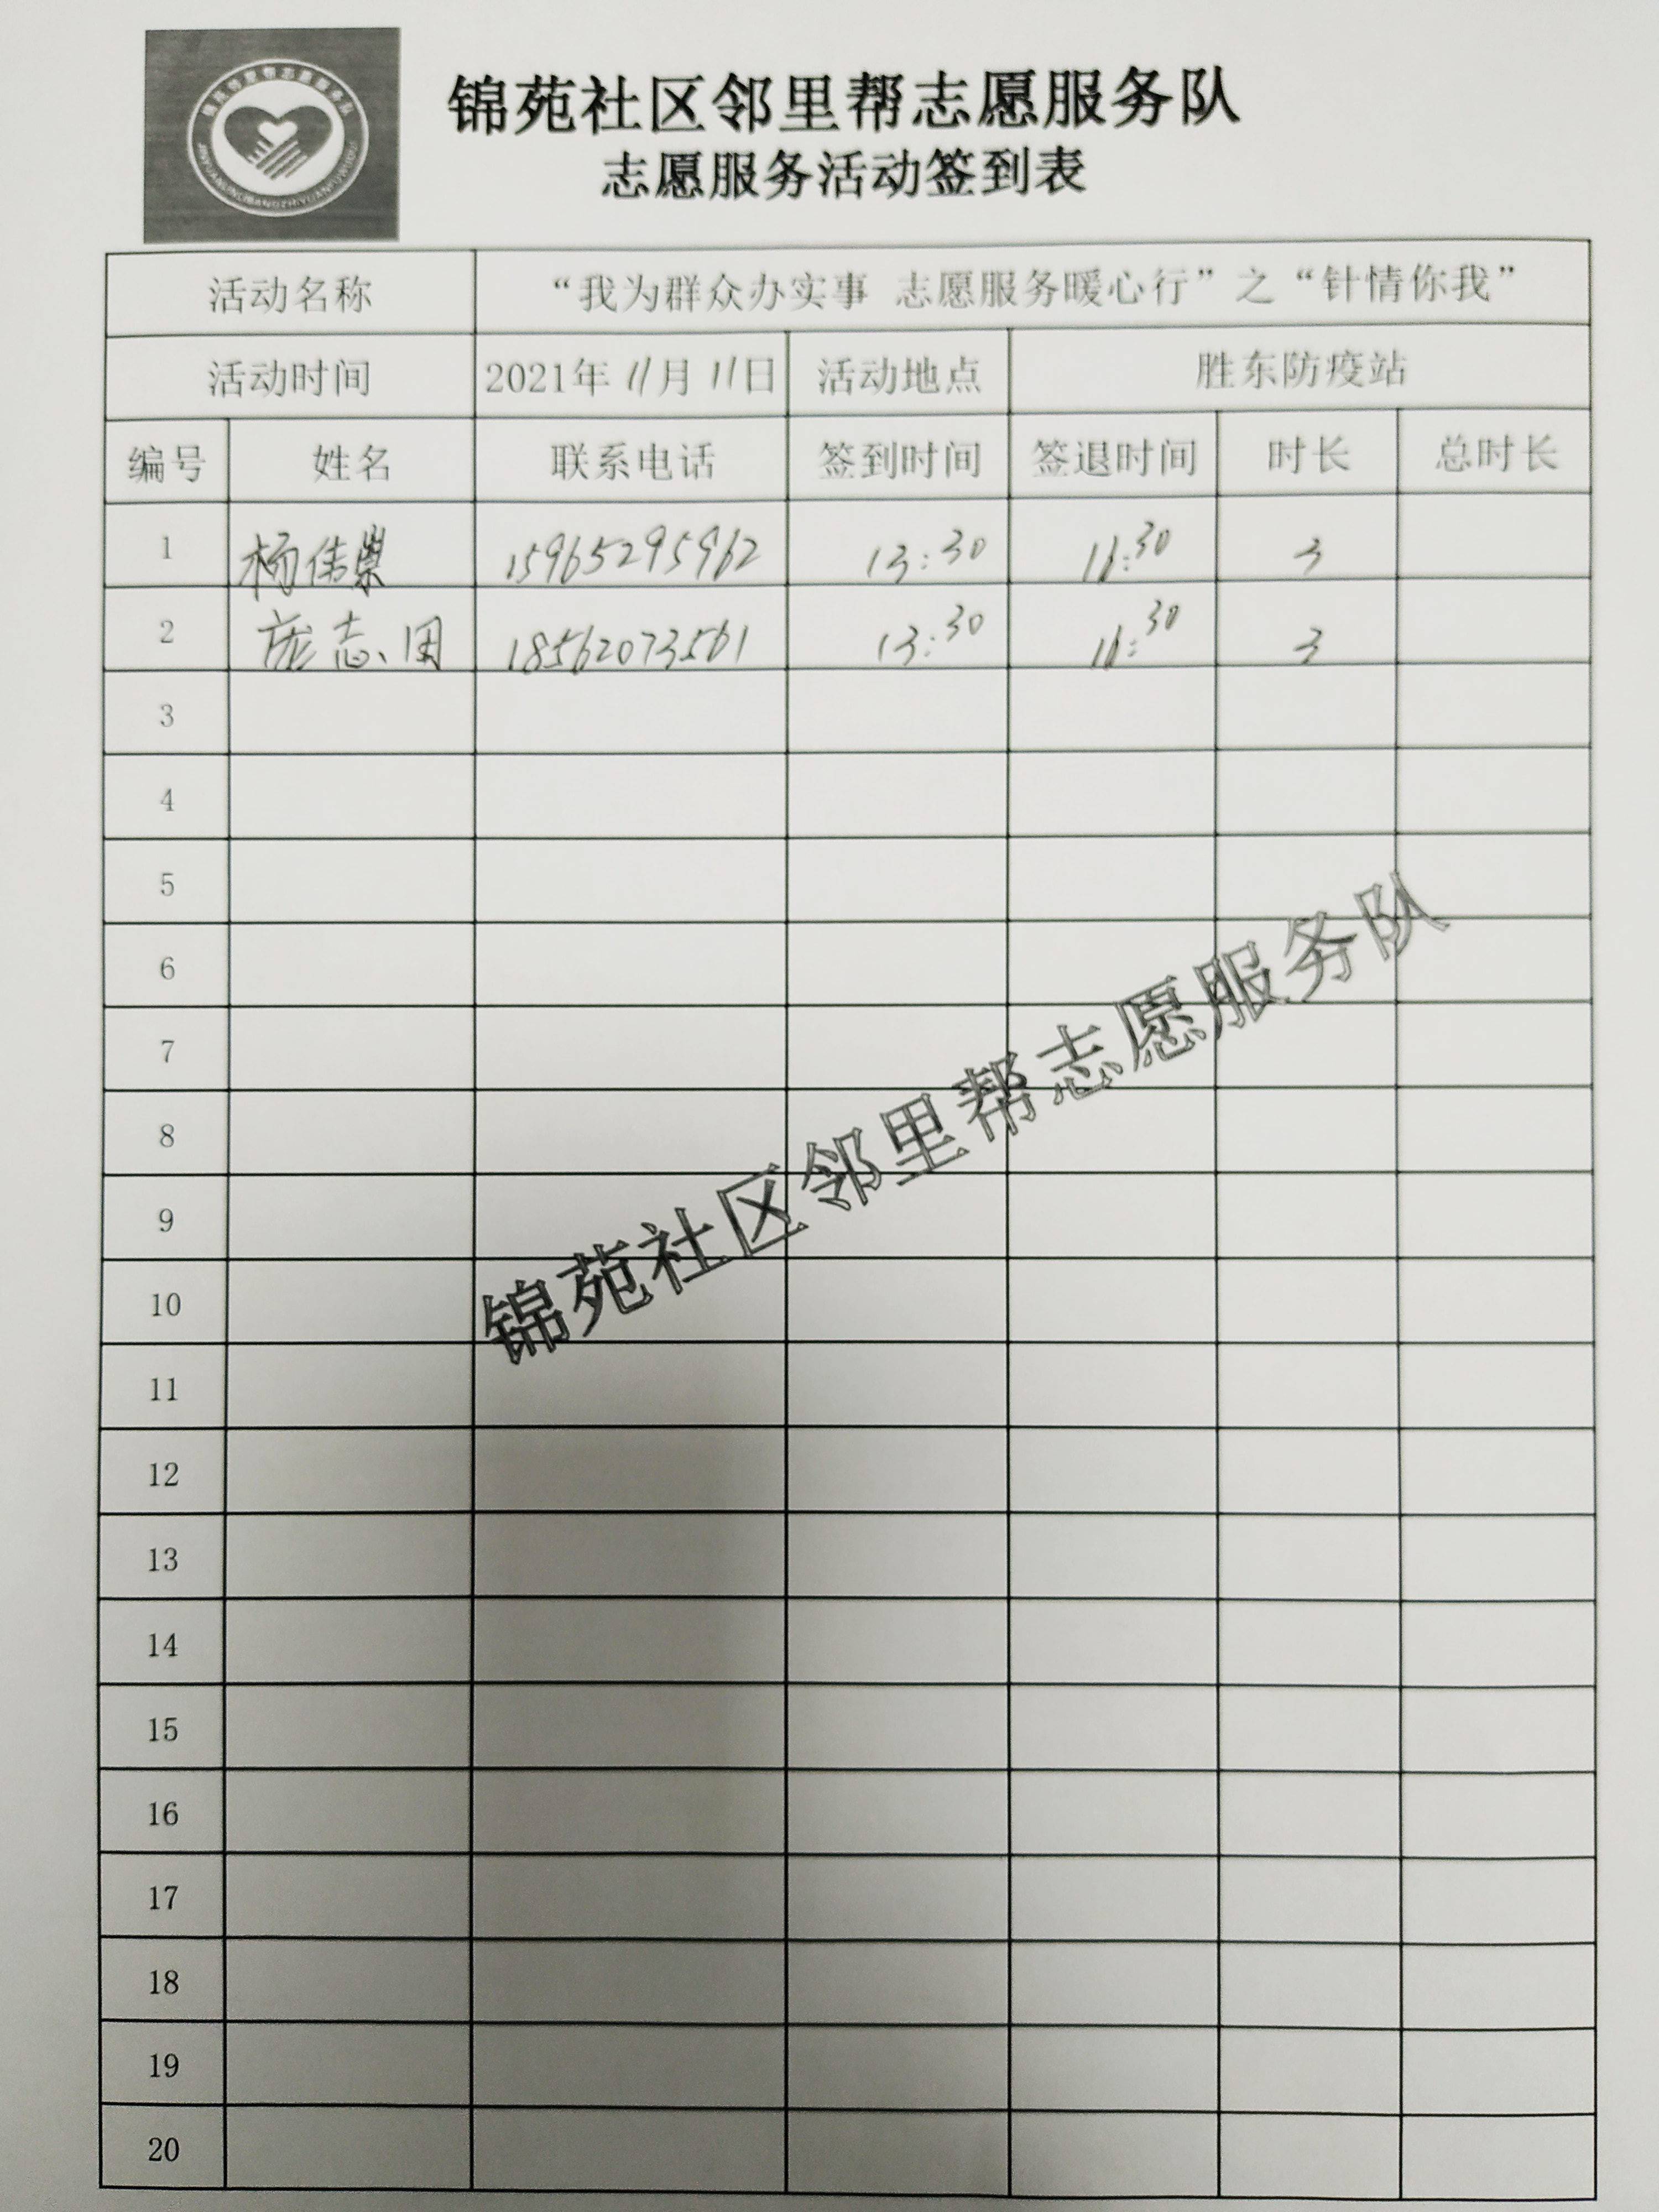 锦苑社区邻里帮志愿服务队
志愿服务活动签到表
活动名称 “我为群众办实事 志愿服务暖心行”之“针情你我”
活动时间 2021年 11月 11日 活动地点 胜东防疫站
编号 姓名 联系电话 签到时间 签退时间 时长 总时长
1 杨伟 15965295962 13:30 16:30 3
2 庞志国 18562073561 13:30 16:30 3
3
4
5
6
7
8
9
10
11
12
13
14
15
16
17
18
19
20
锦苑社区邻里帮志愿服务队